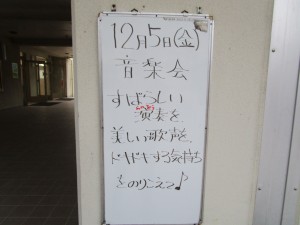 12月5日(金)
音楽会
すばらしい
演奏を
美しい歌声を
ドキドキする気持ち
をのりこえて♪